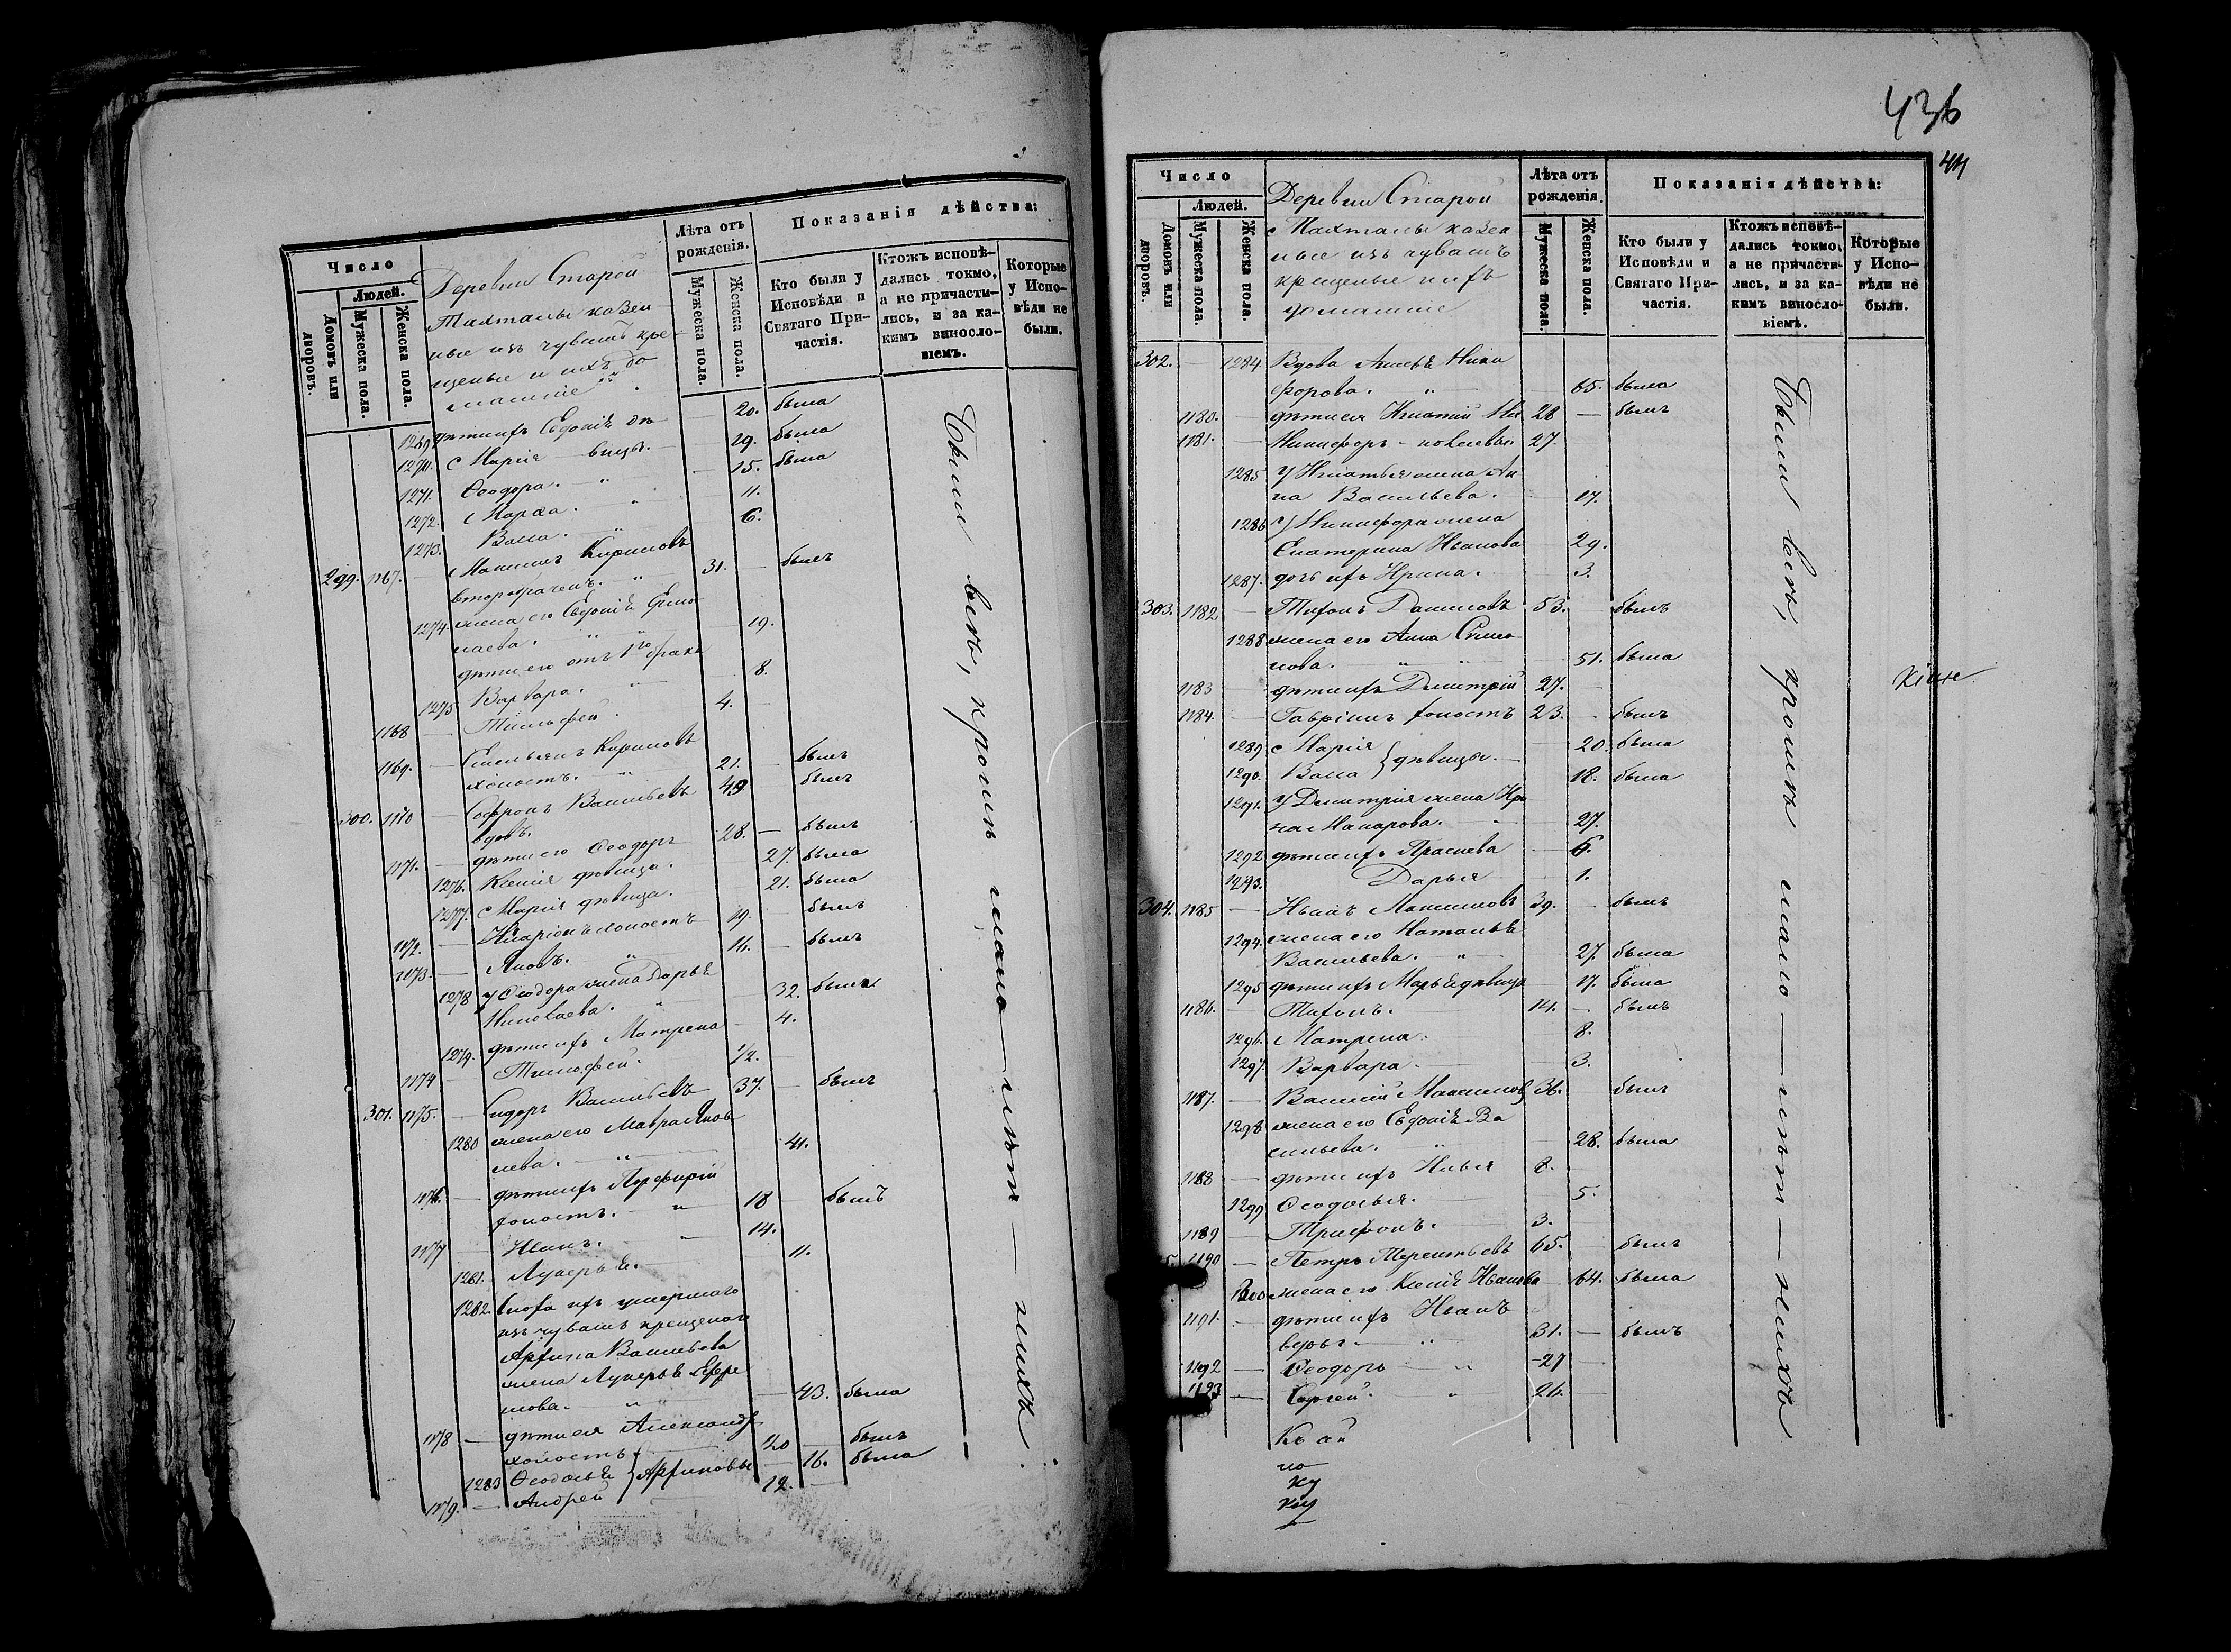 Число
Людей.
Домовъ или дворовъ.
Мужеска пола.
Женска пола.
Деревни Старой
Тахталы казен
ные изъ чувашъ кре-
щеные и ихъ до
машние
Лѣта отъ рожденія.
Мужеска пола.
Женска пола.
Показанія дѣйства:
Кто были у Исповѣди и Святаго Причастія.
Ктожъ исповѣдались токмо, а не причастились, и за какимъ винословіемъ.
Которые у Исповѣди не были.
1269 дѣти ихъ Евдокія дѣ — 20. была
1270. Марія — вицы. — 19. была
1271. Ѳеодора. " — 15. была
1272. Марѳа. " 11.
1273. Васса. " 6.
299. 1167. — Максимъ Кириловъ
второбраченъ. " 31. — былъ
1274. жена его Евдокія Ермо
лаева. " " 19.
дѣти его отъ 1го брака
1275 Варвара. " 8.
1168 — Тимофей. 4. —
1169. — Емельянъ Кириловъ
холостъ. " 21. — былъ
300. 1170 — Софронъ Васильевъ 49 былъ
вдовъ.
1171. — дѣти его Ѳеодоръ 28. — былъ
1276. Ксенія дѣвица. 27. была
1277. Марія дѣвица. 21. была
1172. — Иларіонъ холостъ 19. — былъ
1173. — Яковъ. " 16. — былъ
1278 у Ѳеодора жена Дарья
Николаева. " 32. была
1279. дѣти ихъ Матрена — 4.
1174 — Тимофей. 1/2. —
301. 1175. — Сидоръ Васильевъ 37. — былъ
1280 жена его Мавра Яков
лева. — " 41.
1176. — дѣти ихъ Порфирій
холостъ. — " 18 — былъ
1177 — Иванъ. " 14.
1281. Лукерья. — 11.
1282. Сноха ихъ умершаго
изъ чувашъ крещенаго
Архипа Васильева
жена Лукерья Ефре
мова. " — 43. была
1178 — дѣти ея Александръ
холостъ 20 — былъ
1283 Ѳеодосья } Архиповы — 16. была
1179. — Андрей 12. —
Были всѣ, кромѣ мало-лѣт-нихъ
436
Число
Людей.
Домовъ или дворовъ.
Мужеска пола.
Женска пола.
Деревни Старой
Тахталы казен
ные изъ чувашъ
крещеные и ихъ
домашние
Лѣта отъ рожденія.
Мужеска пола.
Женска пола.
Показанія дѣйства:
Кто были у Исповѣди и Святаго Причастія.
Ктожъ исповѣдались токмо, а не причастились, и за какимъ винословіемъ.
Которые у Исповѣди не были.
302. — 1284 Вдова Анна Ники
форова. " 65. была
1180. — дѣти ея Игнатій 28 — былъ
1181. — Никифоръ 27.
1285 У Игнатья жена Ан
на Васильева. 17.
1286 у Никифора жена
Екатерина Иванова 29.
1287. дочь ихъ Ирина. 3.
303. 1182 — Тихонъ Даниловъ 53. былъ
1288 жена его Анна Симо
нова. " " 51. была
1183 — дѣти ихъ Дмитрій 27. —
1184. — Гавріилъ холостъ 23. былъ
1289 Марія } дѣвицы. — 20. была
1290. Васса 18. была
1291. у Дмитрія жена Ири
на Макарова. — 27.
1292 дѣти ихъ Прасковья 6.
1293. Дарья 1.
304. 1185 — Иванъ Максимовъ 39. — былъ
1294. жена его Наталья
Васильева. " 27. была
1295 дѣти ихъ Марья дѣвица 17. была
1186. — Тихонъ. 14. — былъ
1296. Матрена. 8.
1297. Варвара. 3.
1187. — Василій Максимовъ 36. былъ
1298 жена его Евдокія Ва
сильева. " 28. была
1188 — дѣти ихъ Илья 8. —
1299 Ѳеодосья. — 5.
1189 — Трифонъ. 3.
1190 — Петръ Терентьевъ 65. — былъ
1300 жена его Ксенія Иванова — 64. была
1191. — дѣти ихъ Иванъ
вдовъ. " 31. — былъ
1192 — Ѳеодоръ " 27 —
1193 — Сергей. " 26. —
Были всѣ, кромѣ мало-лѣт-нихъ